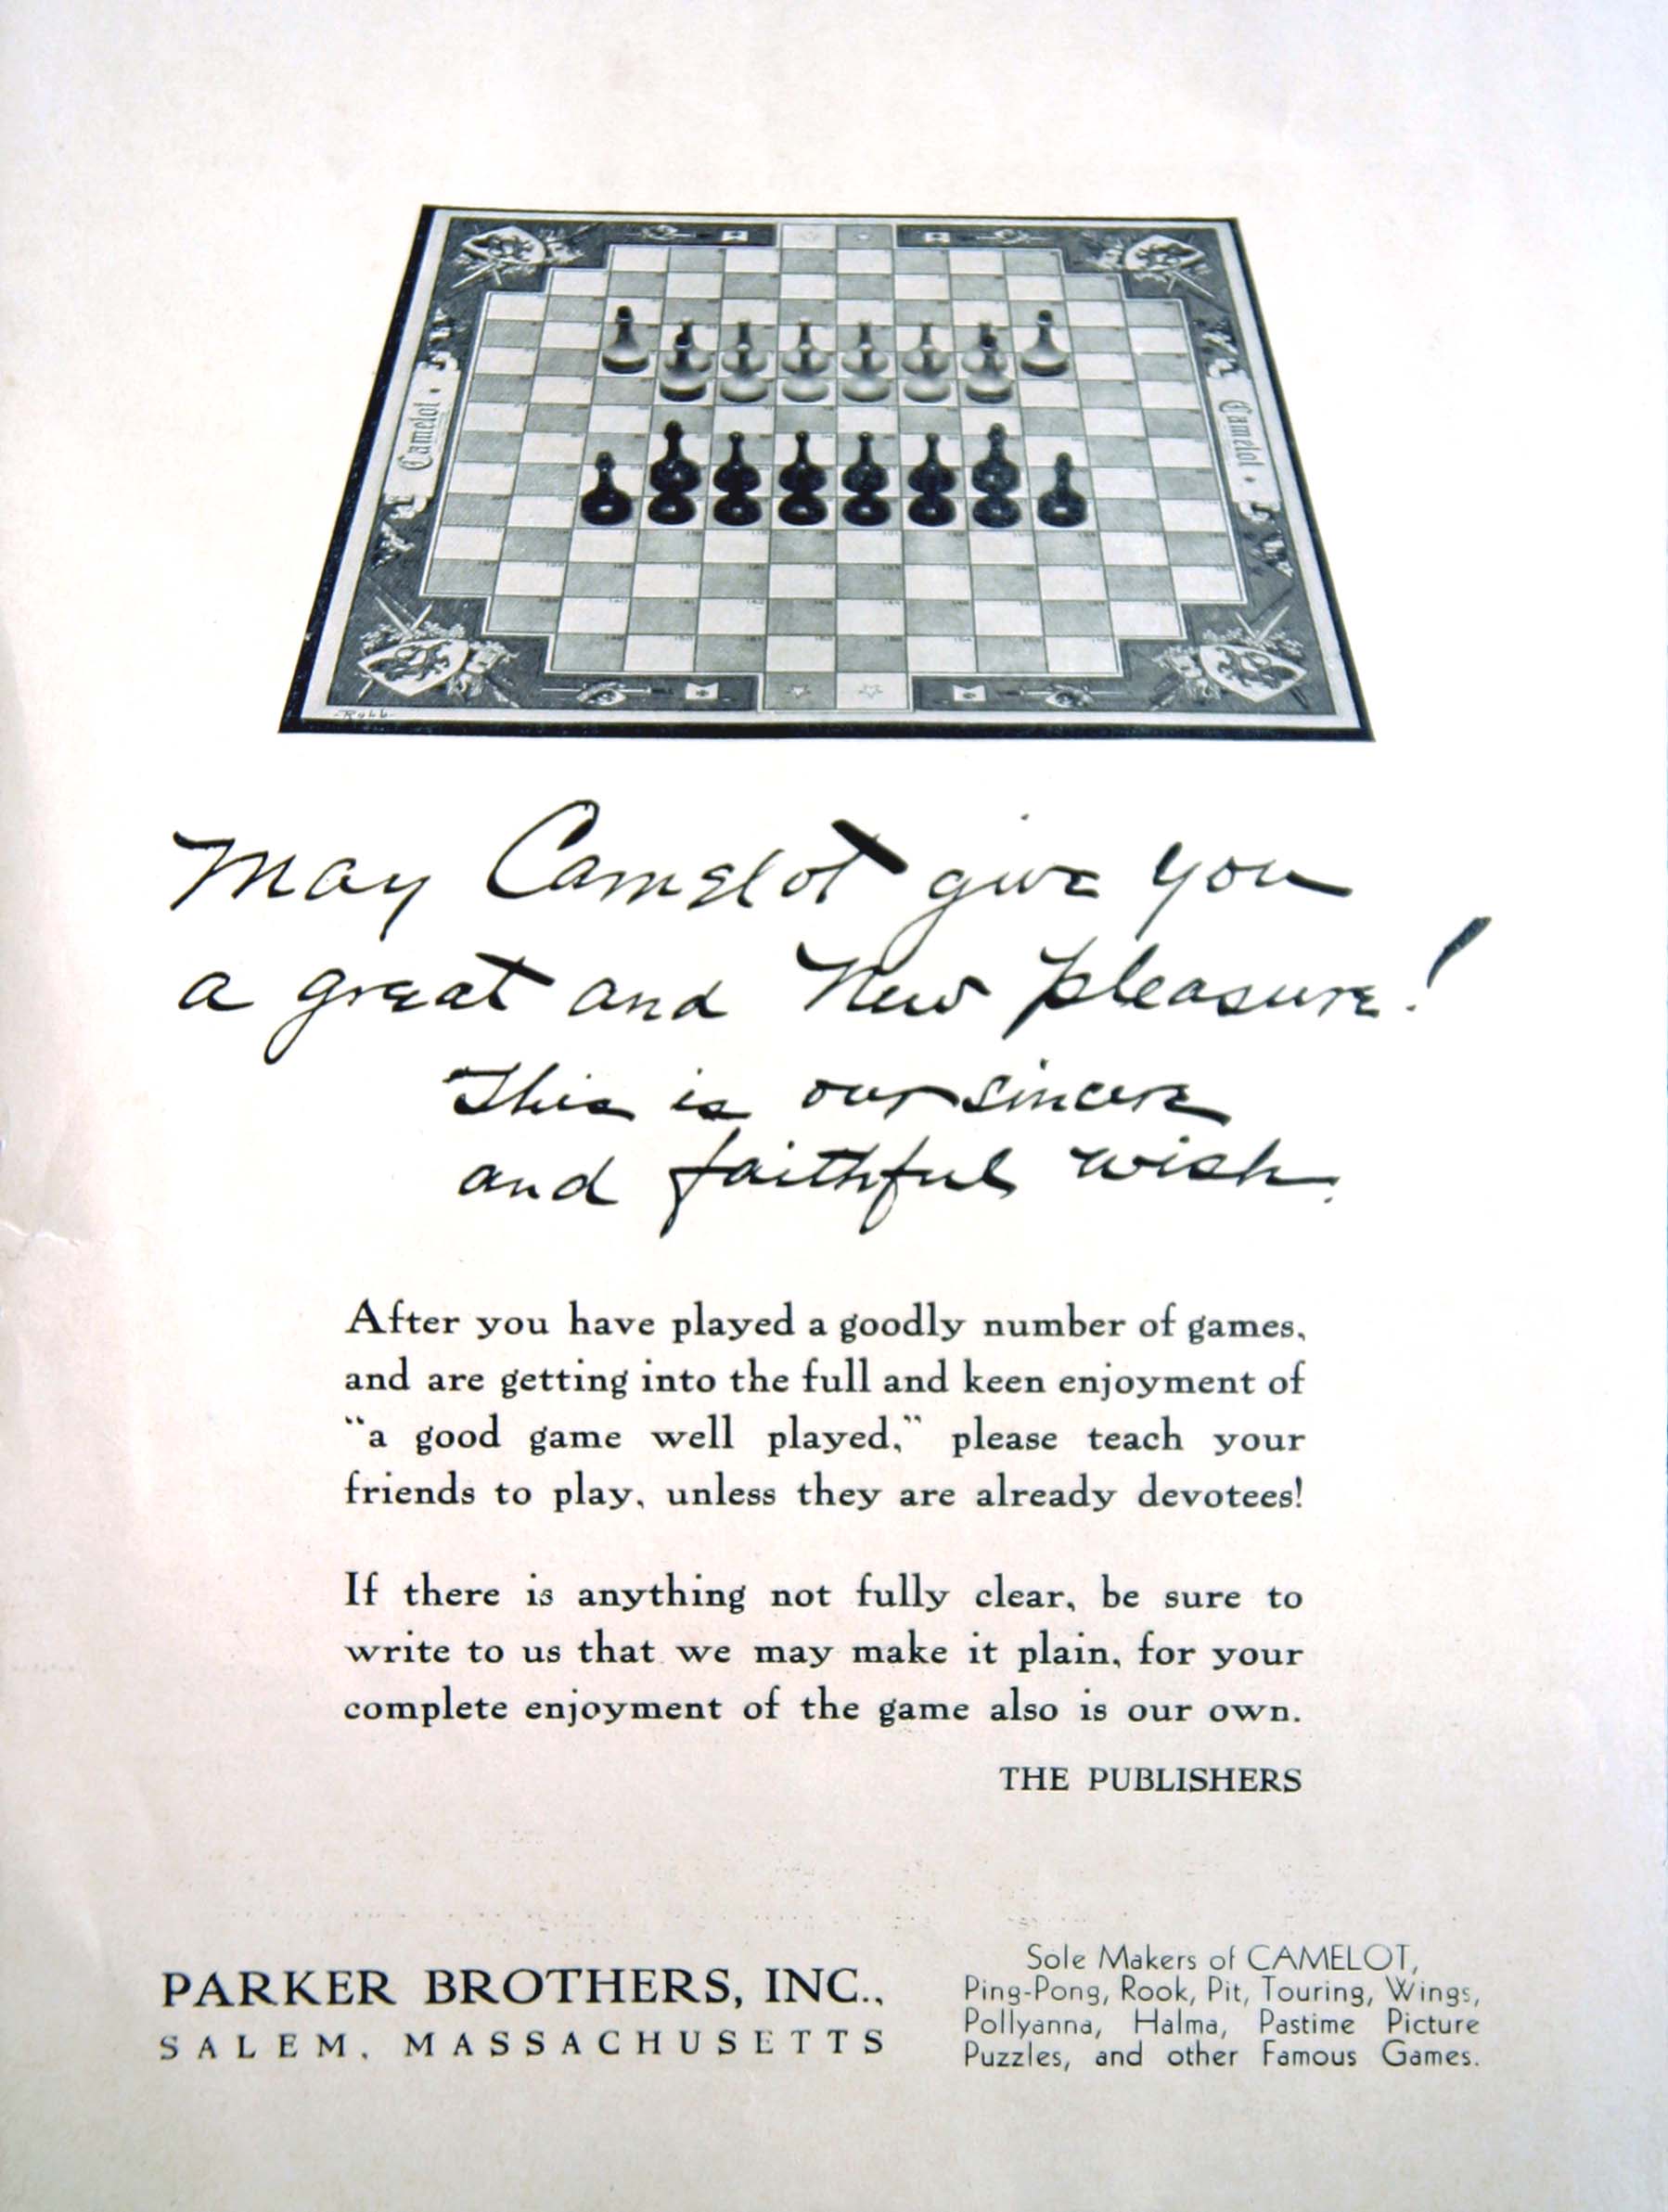 Camelot
Camelot
Robb
May Camelot give you
a great and New pleasure!
This is our sincere
and faithful wish.
After you have played a goodly number of games,
and are getting into the full and keen enjoyment of
"a good game well played," please teach your
friends to play, unless they are already devotees!
If there is anything not fully clear, be sure to
write to us that we may make it plain, for your
complete enjoyment of the game also is our own.
THE PUBLISHERS
PARKER BROTHERS, INC.,
SALEM, MASSACHUSETTS
Sole Makers of CAMELOT,
Ping-Pong, Rook, Pit, Touring, Wings,
Pollyanna, Halma, Pastime Picture
Puzzles, and other Famous Games.